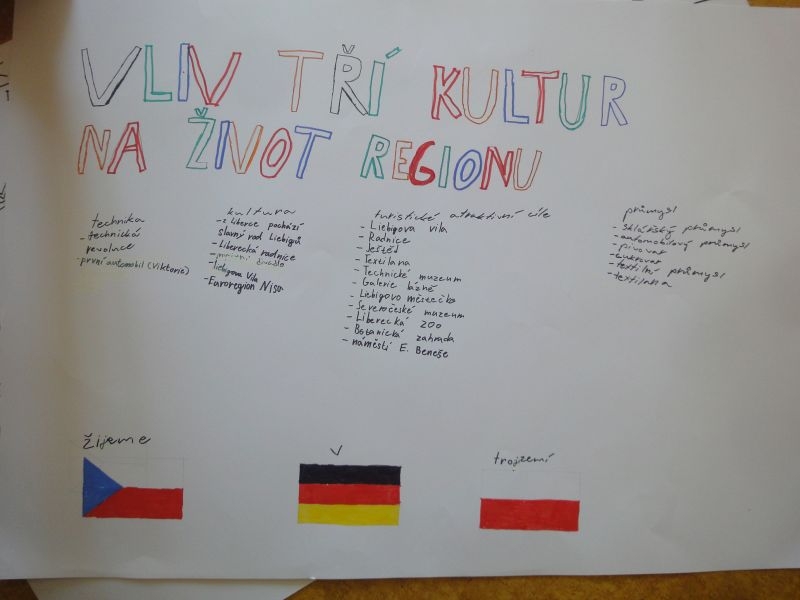 VLIV TŘÍ KULTUR
NA ŽIVOT REGIONU
technika
- technická
revoluce
- první automobil (Viktorie)
kultura
- z Liberce pochází
slavný rod Liebigů
- Liberecká radnice
- divadlo
- liebigova Vila
- Euroregion Nisa
turistické atraktivní cíle
- Liebigova vila
- Radnice
- Ještěd
- Textilana
- Technické muzeum
- Galerie lázně
- Liebigovo městečko
- Severočeské muzeum
- Liberecká ZOO
- Botanická zahrada
- náměstí E. Beneše
průmysl
- sklářský průmysl
- automobilový průmysl
- pivovar
- cukrovar
- textilní průmysl
- textilana
žijeme
v
trojzemí